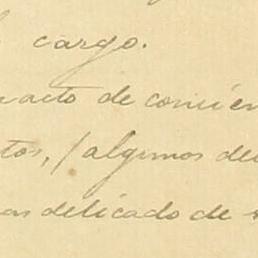 cargo.
acto de concien
tos, / algunos de
delicado de